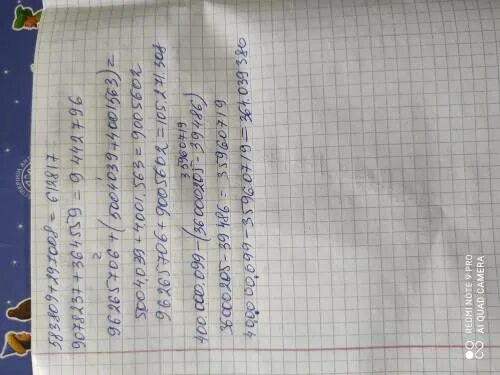 583809+297008=612817
9078237+364559=9 442796
96265706+(5004039+4001563)=
5004,039+4.001,563=9005602
96265706+9005602=105.271.308
35960719
400.000.099-(36000205-39486)
36000205-39486=35960719
40,00.00,099-35960719=364.039380
REDMI NOTE 9 PRO
AI QUAD CAMERA